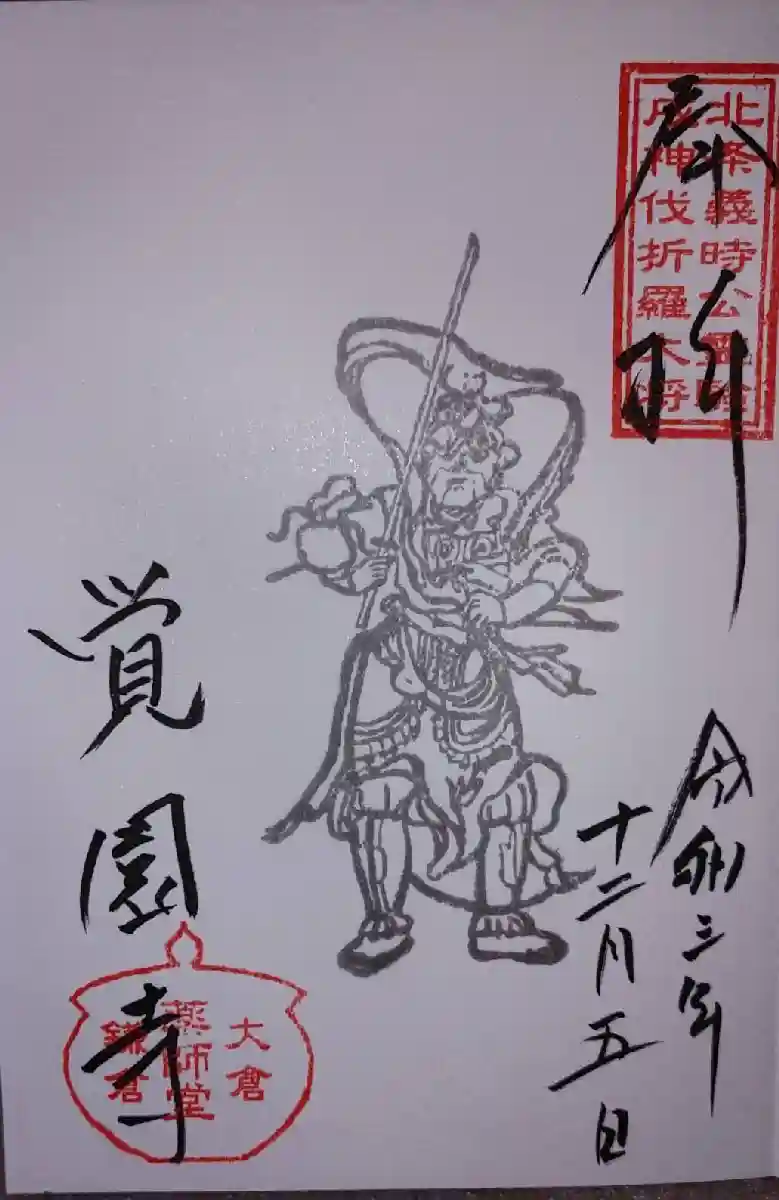 奉拝
北条義時公霊験
戌神伐折羅大将
令和三年
十二月五日
覚園寺
大倉
薬師堂
鎌倉